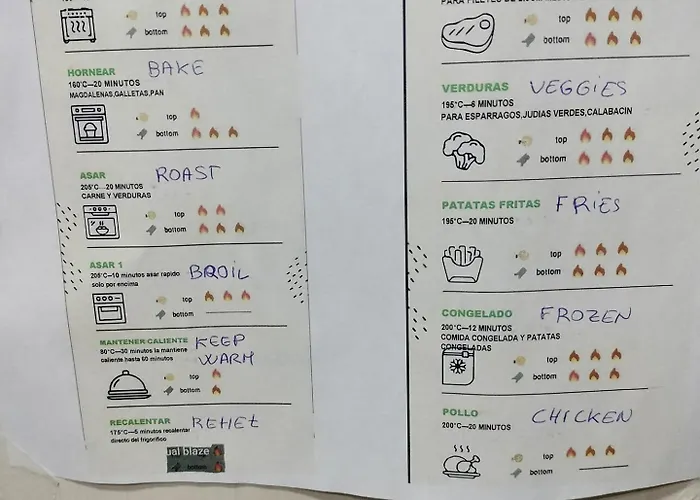 top
bottom
HORNEAR BAKE
160°C—20 MINUTOS
MAGDALENAS,GALLETAS,PAN
top
bottom
ASAR ROAST
205°C—20 MINUTOS
CARNE Y VERDURAS
top
bottom
ASAR 1 BROIL
205°C—10 minutos asar rapido
solo por encima
top
bottom
MANTENER CALIENTE KEEP
WARM
80°C—30 minutos la mantiene
caliente hasta 60 minutos
top
bottom
RECALENTAR REHEt
175°C—5 minutos recalentar
directo del frigorifico
ual blaze
bottom
top
bottom
VERDURAS VEGGiES
195°C—6 MINUTOS
PARA ESPARRAGOS,JUDIAS VERDES,CALABACIN
top
bottom
PATATAS FRITAS FRiES
195°C—20 MINUTOS
top
bottom
CONGELADO FROZEN
200°C—12 MINUTOS
COMIDA CONGELADA Y PATATAS
CONGELADAS
top
bottom
POLLO CHICKEN
200°C—20 MINUTOS
top
bottom